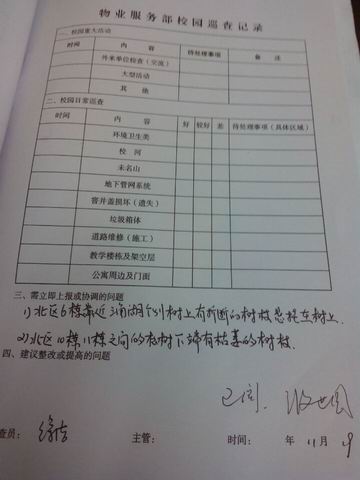 物业服务部校园巡查记录
一、校园重大活动
时间 内容 待处理事项 备注
外来单位检查（交流）
大型活动
其他
二、校园日常巡查
时间 内容 好 较好 差 待处理事项（具体区域）
环境卫生类
校河
未名山
地下管网系统
窨井盖损坏（遗失）
垃圾箱体
道路维修（施工）
教学楼栋及架空层
公寓周边及门面
三、需立即上报或协调的问题
1)北区6栋靠近 个别树上有折断的树枝悬挂在树上.
2)北区10栋11栋之间的 树下端有枯萎的树枝.
四、建议整改或提高的问题
查员: 主管: 时间: 年 11月